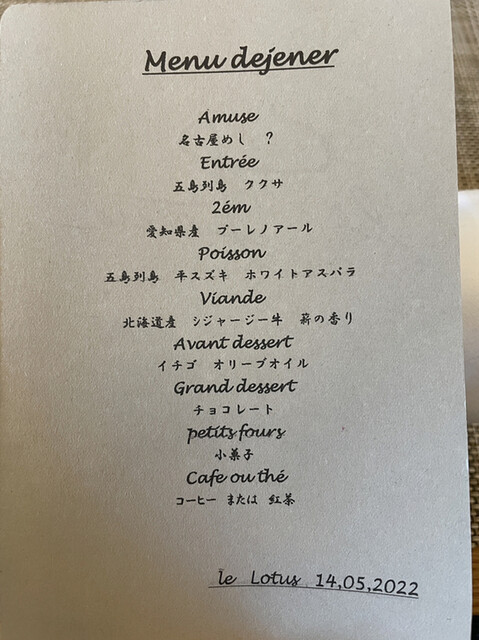 Menu dejener
Amuse
名古屋めし ?
Entrée
五島列島 ククサ
2ém
愛知県産 プーレノアール
Poisson
五島列島 平スズキ ホワイトアスパラ
Viande
北海道産 シジャージー牛 薪の香り
Avant dessert
イチゴ オリーブオイル
Grand dessert
チョコレート
petits fours
小菓子
Cafe ou thé
コーヒー または 紅茶
le Lotus 14,05,2022